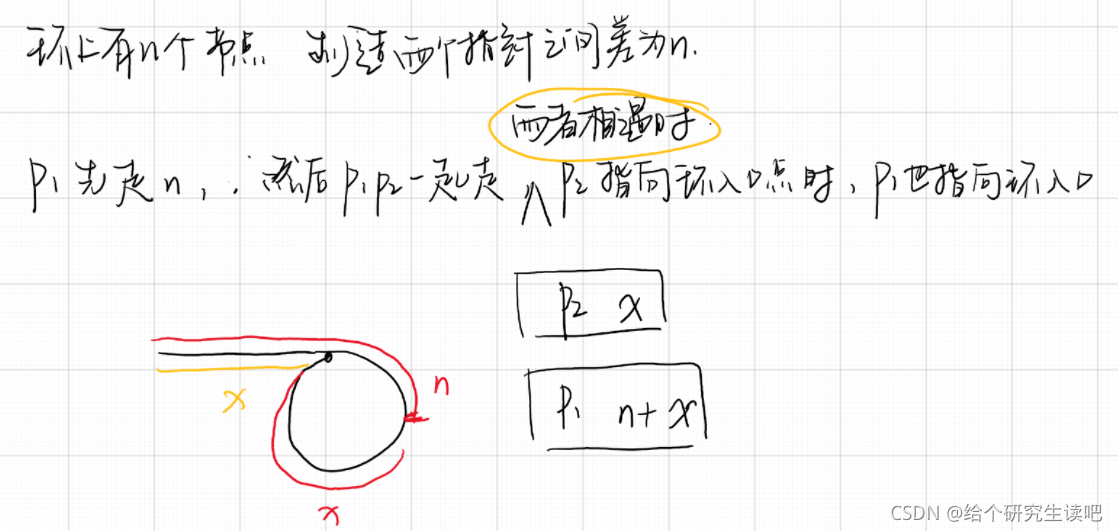 环上有n个节点 制造两个指针之间差为n.
两者相遇时.
P1先走n, 然后P1P2一起走 P2指向环入口点时, P1也指向环入口
P2 x
n
x
P1 n+x
x
CSDN @给个研究生读吧